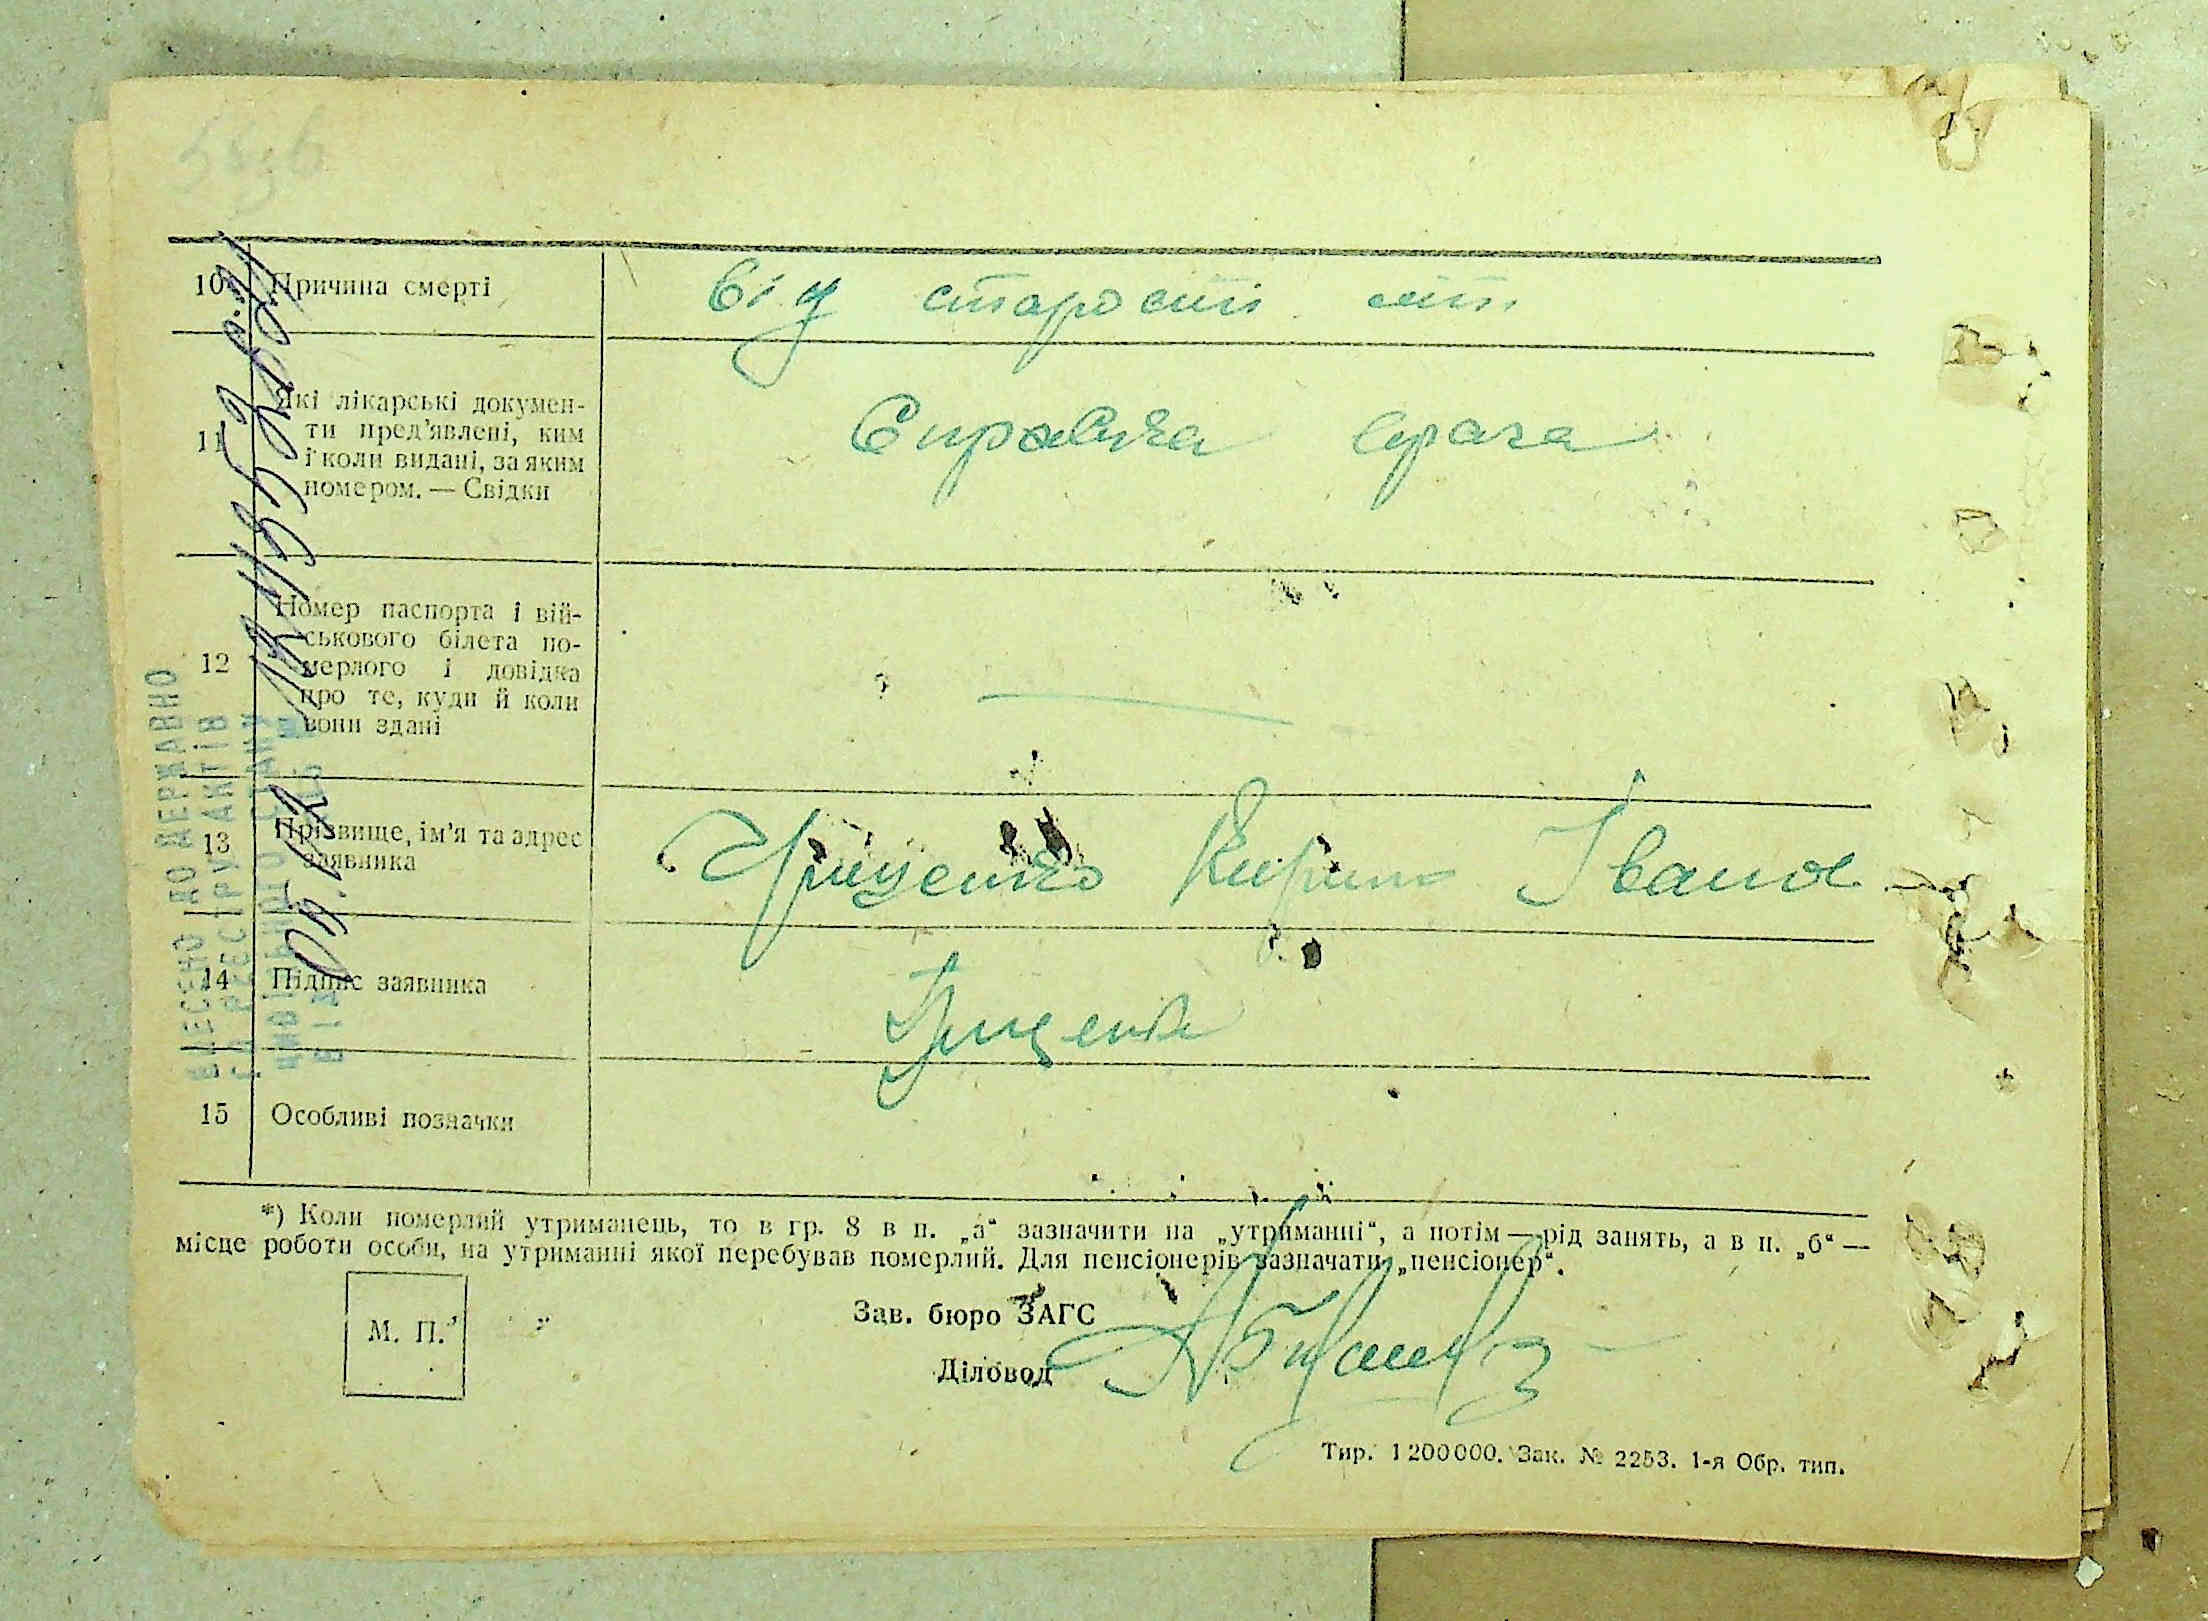 10 Причина смерті від старости літ.
11 Які лікарські докумен-
ти пред'явлені, ким
і коли видані, за яким
номером. — Свідки
Справка врача
12 Номер паспорта і вій-
ськового білета по-
мерлого і довідка
про те, куди й коли
вони здані
13 Прізвище, ім'я та адрес
заявника
Гриценко Іванов
14 Підпис заявника
15 Особливі позначки
*) Коли померлий утриманець, то в гр. 8 в п. „а“ зазначити на „утриманні“, а потім — рід занять, а в п. „б“ —
місце роботи особи, на утриманні якої перебував померлий. Для пенсіонерів зазначати „пенсіонер“.
М. П.
Зав. бюро ЗАГС
Діловод
Тир. 1200000. Зак. № 2253. 1-я Обр. тип.
ВНЕСЕНО ДО ДЕРЖАВНО
ГО РЕЄСТРУ АКТІВ
ЦИВІЛЬНОГО СТАНУ